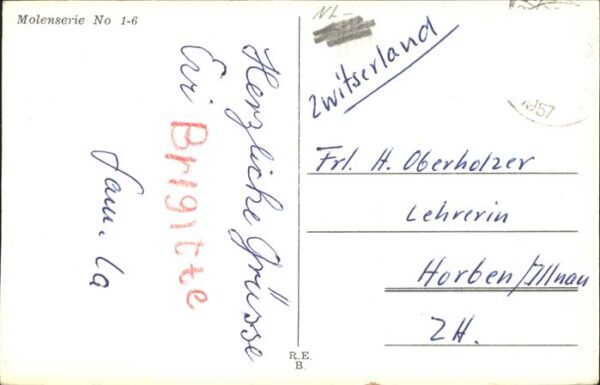 Molenserie No 1-6
Herzliche Grüsse
Brigitte
NL-
Zwitserland
1957
Frl. H. Oberholzer
Lehrerin
Horben/Illnau
ZH.
R.E.
B.